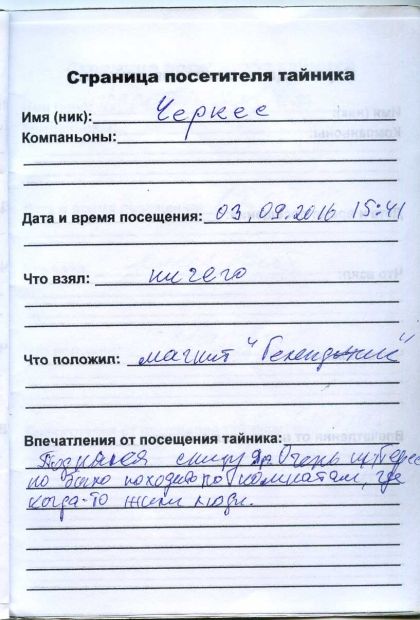 Страница посетителя тайника
Имя (ник): Черкес
Компаньоны:
Дата и время посещения: 03.09.2016 15:41
Что взял: ничего
Что положил: магнит "Геленджик"
Впечатления от посещения тайника:
Поднялся снизу Очень интерес
но было походить по комнатам, где
когда-то жили люди.